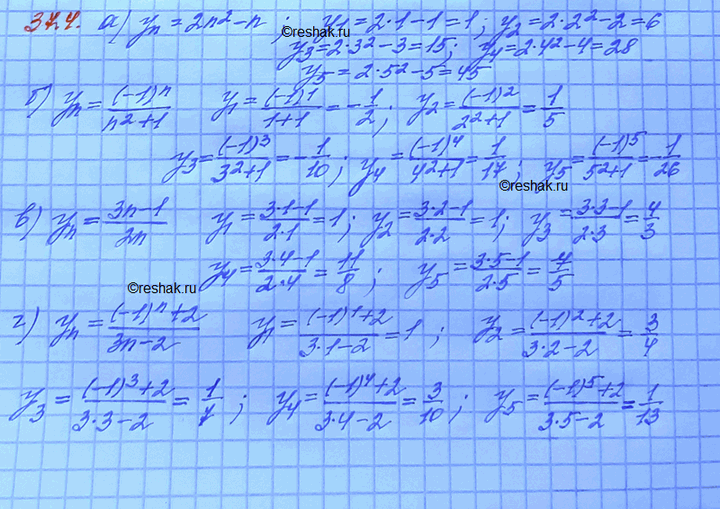 374. а) yₙ = 2n² - n ; y₁ = 2·1-1 = 1; y₂ = 2·2²-2 = 6
©reshak.ru
y₃ = 2·3²-3 = 15; y₄ = 2·4²-4 = 28
y₅ = 2·5²-5 = 45
б) yₙ = (-1)ⁿ/(n²+1) y₁ = (-1)¹/(1+1) = -1/2; y₂ = (-1)²/(2²+1) = 1/5
y₃ = (-1)³/(3²+1) = -1/10; y₄ = (-1)⁴/(4²+1) = 1/17; y₅ = (-1)⁵/(5²+1) = -1/26
©reshak.ru
в) yₙ = (3n-1)/2n y₁ = (3·1-1)/(2·1) = 1; y₂ = (3·2-1)/(2·2) = 1; y₃ = (3·3-1)/(2·3) = 4/3
y₄ = (3·4-1)/(2·4) = 11/8; y₅ = (3·5-1)/(2·5) = 7/5
©reshak.ru
г) yₙ = ((-1)ⁿ+2)/(3n-2) y₁ = ((-1)¹+2)/(3·1-2) = 1; y₂ = ((-1)²+2)/(3·2-2) = 3/4
y₃ = ((-1)³+2)/(3·3-2) = 1/7; y₄ = ((-1)⁴+2)/(3·4-2) = 3/10; y₅ = ((-1)⁵+2)/(3·5-2) = 1/13